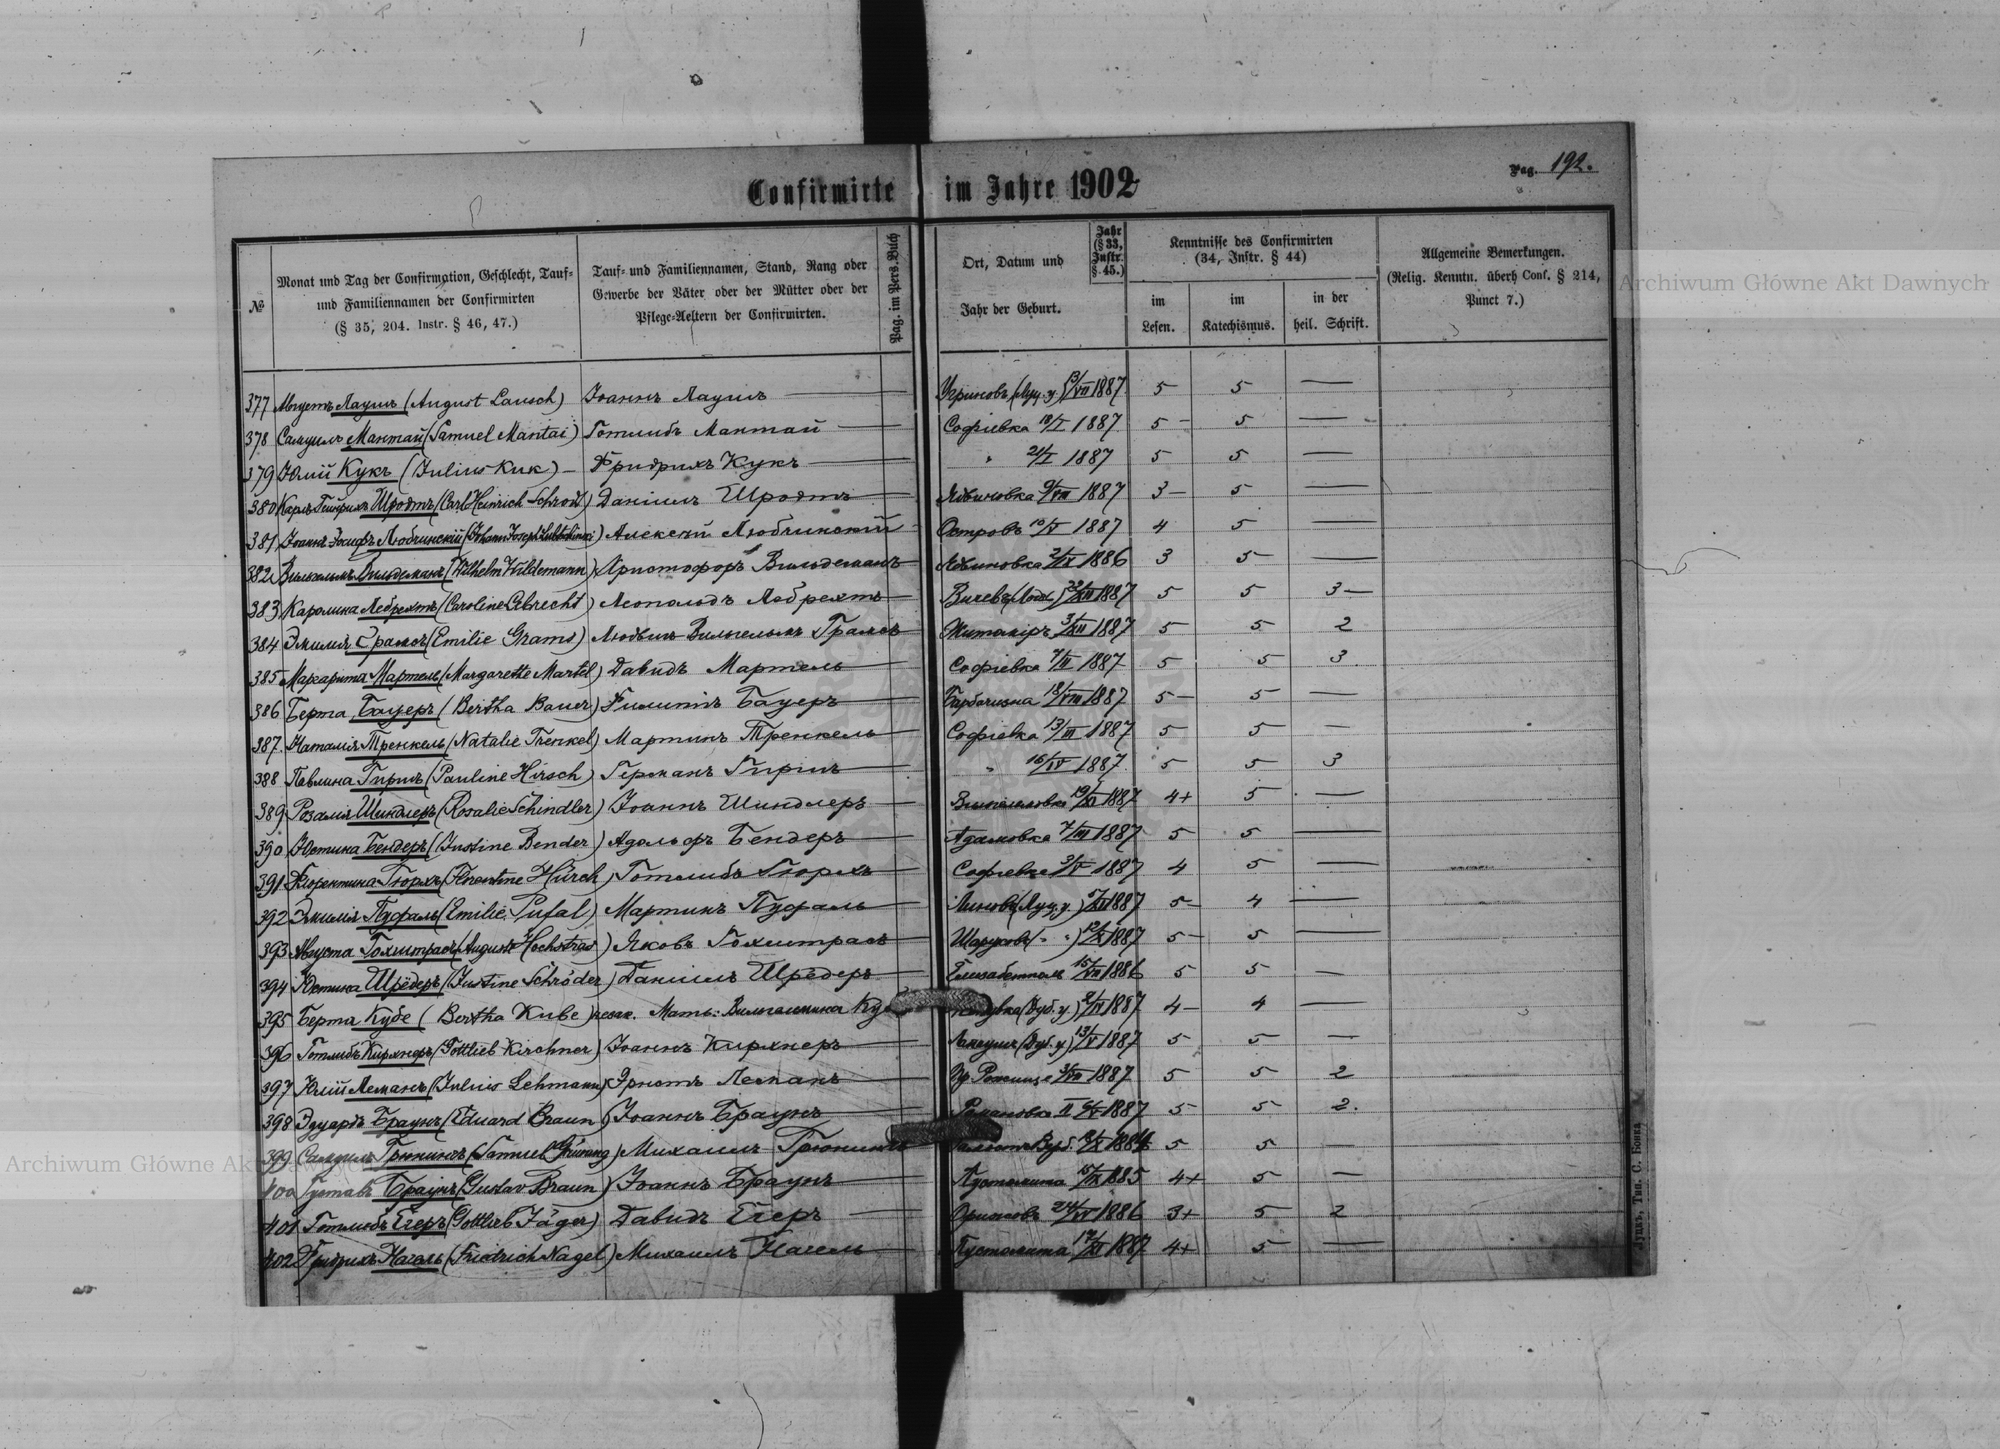 Confirmirte im Jahre 1902
Pag. 192.
№
Monat und Tag der Confirmation, Geschlecht, Tauf- und Familiennamen der Confirmirten (§ 35, 204. Instr. § 46, 47.)
Tauf- und Familiennamen, Stand, Rang oder Gewerbe der Väter oder der Mütter oder der Pflege-Aeltern der Confirmirten.
Pag. im Pers.Buch
Ort, Datum und Jahr der Geburt.
Jahr (§ 33, Instr. § 45.)
Kenntnisse des Confirmirten (34, Instr. § 44)
im Lesen.
im Katechismus.
in der heil. Schrift.
Allgemeine Bemerkungen. (Relig. Kenntn. überh Conf. § 214, Punct 7.)
377 Августъ Лаушъ (August Lausch) Іоаннъ Лаушъ — Угриновъ (Луц. у.) 1887 5 5 —
378 Самуилъ Мантай (Samuel Mantai) Готлибъ Мантай — Софіевка 1887 5 - 5 —
379 Юлій Кукъ (Julius Kuk) — Фридрихъ Кукъ — " 24/I 1887 5 5 —
380 Карлъ Генрихъ Шродтъ (Carl Heinrich Schrodt) Даніилъ Шродтъ — 1887 3 - 5 —
381 Іоаннъ Іосифъ Любчинскій (Johann Joseph) Алексѣй Любчинскій — Островъ 10/V 1887 4 5 —
382 Вильгельмъ Вильдеманъ (Wilhelm Wildemann) Христофоръ Вильдеманъ 1886 3 5 —
383 Каролина Лебрехтъ (Caroline Lebrecht) Леопольдъ Лебрехтъ — 1887 5 5 3 —
384 Эмилія Грамсъ (Emilie Grams) Людвикъ Вильгельмъ Грамсъ Житоміръ 1887 5 5 2
385 Маргарита Мартель (Margarethe Martel) Давидъ Мартель — Софіевка 1887 5 5 3
386 Берта Бауеръ (Bertha Bauer) Филиппъ Бауеръ — 18/VIII 1887 5 - 5 —
387. Наталія Тренкель (Natalie Trenkel) Мартинъ Тренкель — Софіевка 13/III 1887 5 5 —
388 Павлина Гиршъ (Pauline Hirsch) Германъ Гиршъ — " 16/IV 1887 5 5 3
389 Розалія Шиндлеръ (Rosalie Schindler) Іоаннъ Шиндлеръ — 1887 4+ 5 —
390 Юстина Бендеръ (Justine Bender) Адольфъ Бендеръ — Адамовка 7/III 1887 5 5 —
391 Флорентина Гюрхъ (Florentine Hürch) Готлибъ Гюрхъ — Софіевка 3/V 1887 4 5 —
392 Эмилія Пуфаль (Emilie Pufal) Мартинъ Пуфаль — (Луц. у.) 1887 5 - 4 —
393 Августа Гохштрасъ (Auguste Hochstras) Яковъ Гохштрасъ — 1887 5 - 5 —
394 Юстина Шредеръ (Justine Schröder) Даніилъ Шредеръ — Елизабетполь 1886 5 5 —
395 Берта Кубе (Bertha Kube) незак. Мать: Вильгельмина (Дуб. у.) 1887 4 - 4 —
396 Готлибъ Кирхнеръ (Gottlieb Kirchner) Іоаннъ Кирхнеръ — (Дуб. у) 13/V 1887 5 5 —
397 Юлій Леманъ (Julius Lehmann) Эрнстъ Леманъ — 1887 5 5 2
398 Эдуардъ Браунъ (Eduard Braun) Іоаннъ Браунъ — Романовка II 1887 5 5 2.
399 Самуилъ Грюнингъ (Samuel Grüning) Михаилъ Грюнингъ 5 5 —
400 Густавъ Браунъ (Gustav Braun) Іоаннъ Браунъ — 1885 4+ 5 —
401 Готлибъ Егеръ (Gottlieb Jäger) Давидъ Егеръ — 1886 3+ 5 2
402 Фридрихъ Нагель (Friedrich Nagel) Михаилъ Нагель — 1887 4+ 5 —
Луцкъ, Тип. С. Бонка
Archiwum Główne Akt Dawnych
Archiwum Główne Akt Dawnych